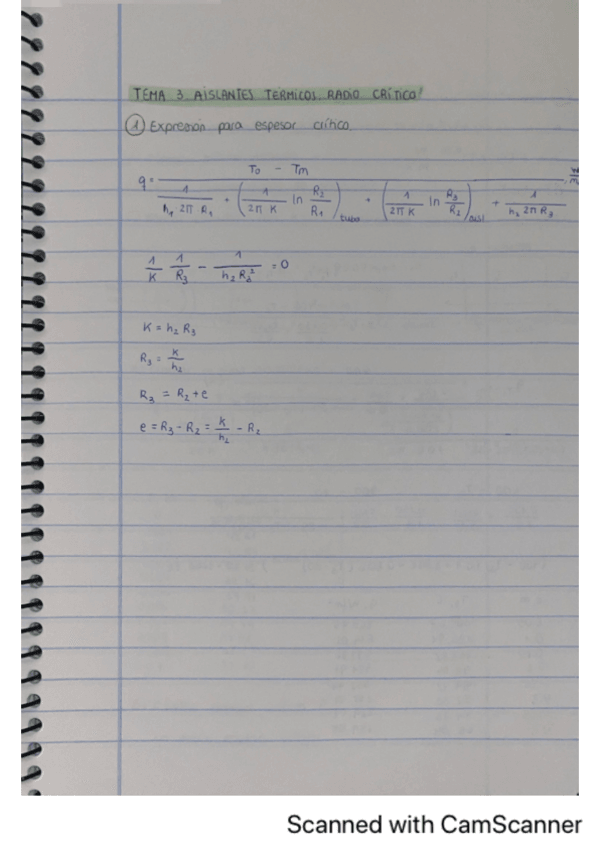 TEMA 3. AISLANTES TÉRMICOS. RADIO CRÍTICO
① Expresión para espesor crítico.
q = (T0 - Tm) / (1/(h1 2π R1) + (1/(2π K) ln R2/R1)tubo + (1/(2π K) ln R3/R2)aisl + 1/(h2 2π R3)), W/m
1/K 1/R3 - 1/(h2 R3²) = 0
K = h2 R3
R3 = K/h2
R3 = R2 + e
e = R3 - R2 = K/h2 - R2
Scanned with CamScanner